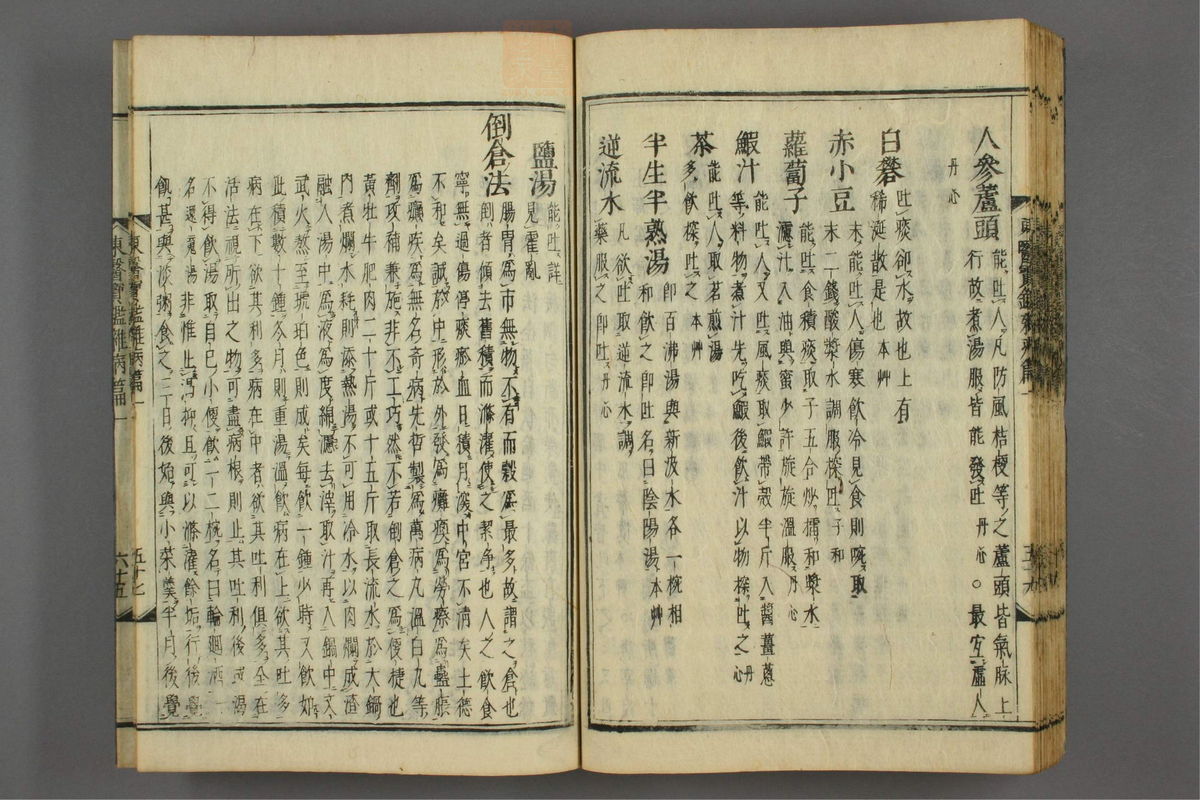 人參蘆頭 能吐人凡防風桔梗等之蘆頭皆氣脉上
行故煮湯服皆能發吐丹心○最宜虛人
丹心
白礬 吐痰卻水故也上有
稀涎散是也本艸
赤小豆 末能吐人傷寒飲冷見食則㖞取
末二錢酸漿水調服探吐子和
蘿蔔子 能吐食積痰取子五合炒擂和漿水
濾汁入油與蜜少許旋旋溫服丹心
鰕汁 能吐人又吐風痰取鰕帶殼半斤入醬薑蔥
等料物煮汁先吃鰕後飲汁以物探吐之丹心
茶 能吐人取茗煎湯
多飲探吐之本艸
半生半熟湯 即百沸湯與新汲水各一椀相
和飲之即吐名曰陰陽湯本艸
逆流水 凡欲吐取逆流水調
藥服之即吐丹心
鹽湯 能吐詳
見霍亂
倒倉法 腸胃爲市無物不有而穀爲最多故謂之倉也
倒者傾去舊積而滌濯使之潔净也人之飲食
寧無過傷停痰瘀血日積月深中宮不清矣土德
不和矣誠於中形於外發爲癱瘓爲勞瘵爲蠱脹
爲癩疾爲無名奇病先哲製爲萬病丸溫白丸等
劑攻補兼施非不工巧然不若倒倉之爲便捷也
黃牡牛肥肉二十斤或十五斤取長流水於大鍋
內煮爛水耗則添熱湯不可用冷水以肉爛成渣
融入湯中爲液爲度綿濾去滓取汁再入鍋中文
武火熬至琥珀色則成矣每飲一鍾少時又飲如
此積數十鍾冬月則重湯溫飲病在上欲其吐多
病在下欲其利多病在中者欲其吐利俱多全在
活法視所出之物可盡病根則止其吐利後或渴
不得飲湯取自己小便飲一二椀名曰輪廻酒一
名還魂湯非惟止渴抑且可以滌濯餘垢行後覺
飢甚與淡粥食之三日後始與小菜羹半月後覺
東醫寶鑑雜病篇一
五十七
六十五